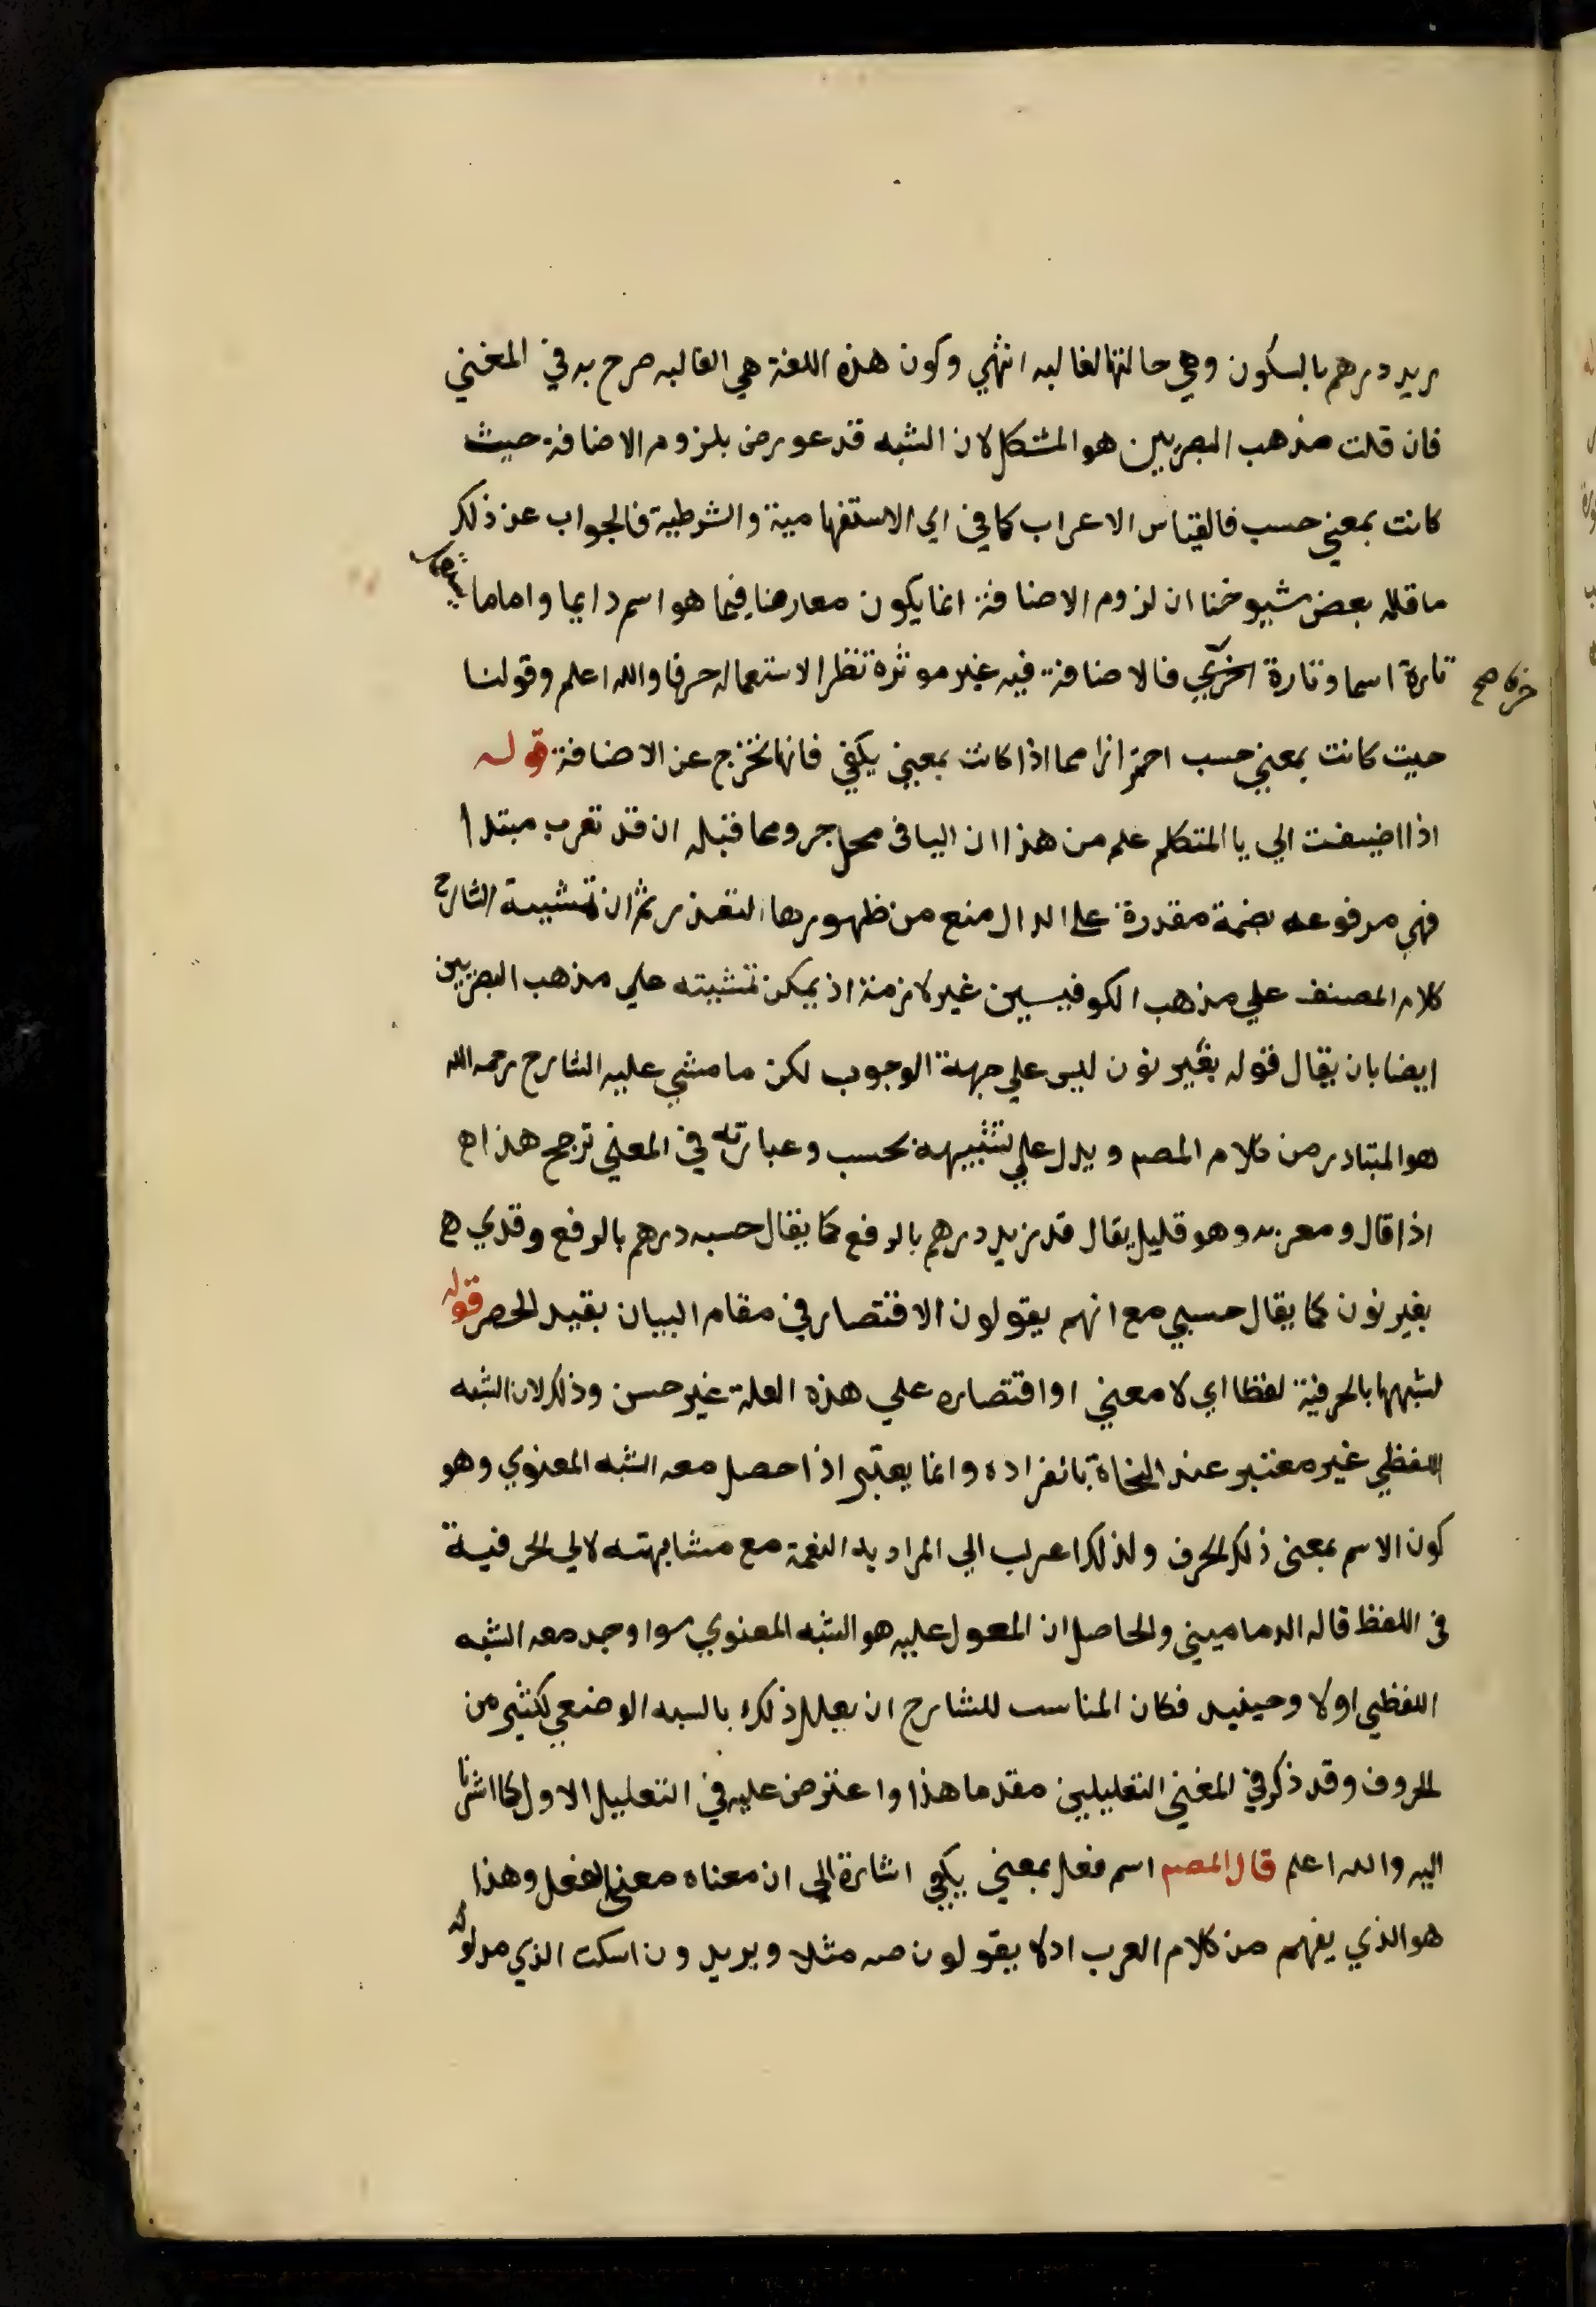 زيد درهم بالسكون وهي حالتها الغالبه انتهي وكون هذه اللغة هي الغالبه صرح به في المغني
فان قلت مذهب البصريين هو المشكل لان الشبه قد عورض بلزوم الاضافة حيث
كانت بمعني حسب فالقياس الاعراب كما في اي الاستفهامية والشرطية فالجواب عن ذلك
ما قاله بعض شيوخنا ان لزوم الاضافة انما يكون معارضا فيما هو اسم دايما واما ما
تارة اسما وتارة فالاضافة فيه غير موثرة نظرا لاستعماله حرفا والله اعلم وقولنا
حيث كانت بمعني حسب احترازا مما اذا كانت بمعني يكفي فانها تخرج عن الاضافة قوله
اذا اضيفت الي يا المتكلم علم من هذا ان اليا في محل جر ومما قبله ان قد تعرب مبتدا
فهي مرفوعه بضمة مقدرة علي الدال منع من ظهورها التعذر ثم ان تمشية الشارح
كلام المصنف علي مذهب الكوفيين غير لازمة اذ يمكن تمشيته علي مذهب البصريين
ايضا بان يقال قوله بغير نون ليس علي جهة الوجوب لكن ما مشي عليه الشارح رحمه الله
هو المتبادر من كلام المصـ ويدل علي تشبيهه بحسب وعبارته في المغني ترجح هذا اه
اذا قال ومعربه وهو قليل يقال قد زيد درهم بالرفع كما يقال حسبه درهم بالرفع وقدي ه
بغير نون كما يقال حسبي مع انهم يقولون الاقتصار في مقام البيان يفيد الحصر قوله
لشبهها بالحرفية لفظا اي لا معني او اقتصاره علي هذه العلة غير حسن وذلك لان الشبه
اللفظي غير معتبر عند النحاة بانفراده وانما يعتبر اذا حصل معه الشبه المعنوي وهو
كون الاسم بمعني ذلك الحرف ولذلك اعرب الي المراد به النعمة مع مشابهته لالي الحرفية
في اللفظ قاله الدماميني والحاصل ان المعول عليه هو الشبه المعنوي سوا وجد معه الشبه
اللفظي اولا وحينيد فكان المناسب للشارح ان يعلل ذلك بالسبه الوضعي لكثير من
الحروف وقد ذكر في المغني التعليلين مقدما هذا واعترض عليه في التعليل الاول كما اشرنا
اليه والله اعلم قال المصـ اسم فعل بمعني يكفي اشارة الي ان معناه معني الفعل وهذا
هو الذي يفهم من كلام العرب اذلا يقولون صه مثلا ويريدون اسكت الذي مدلوله